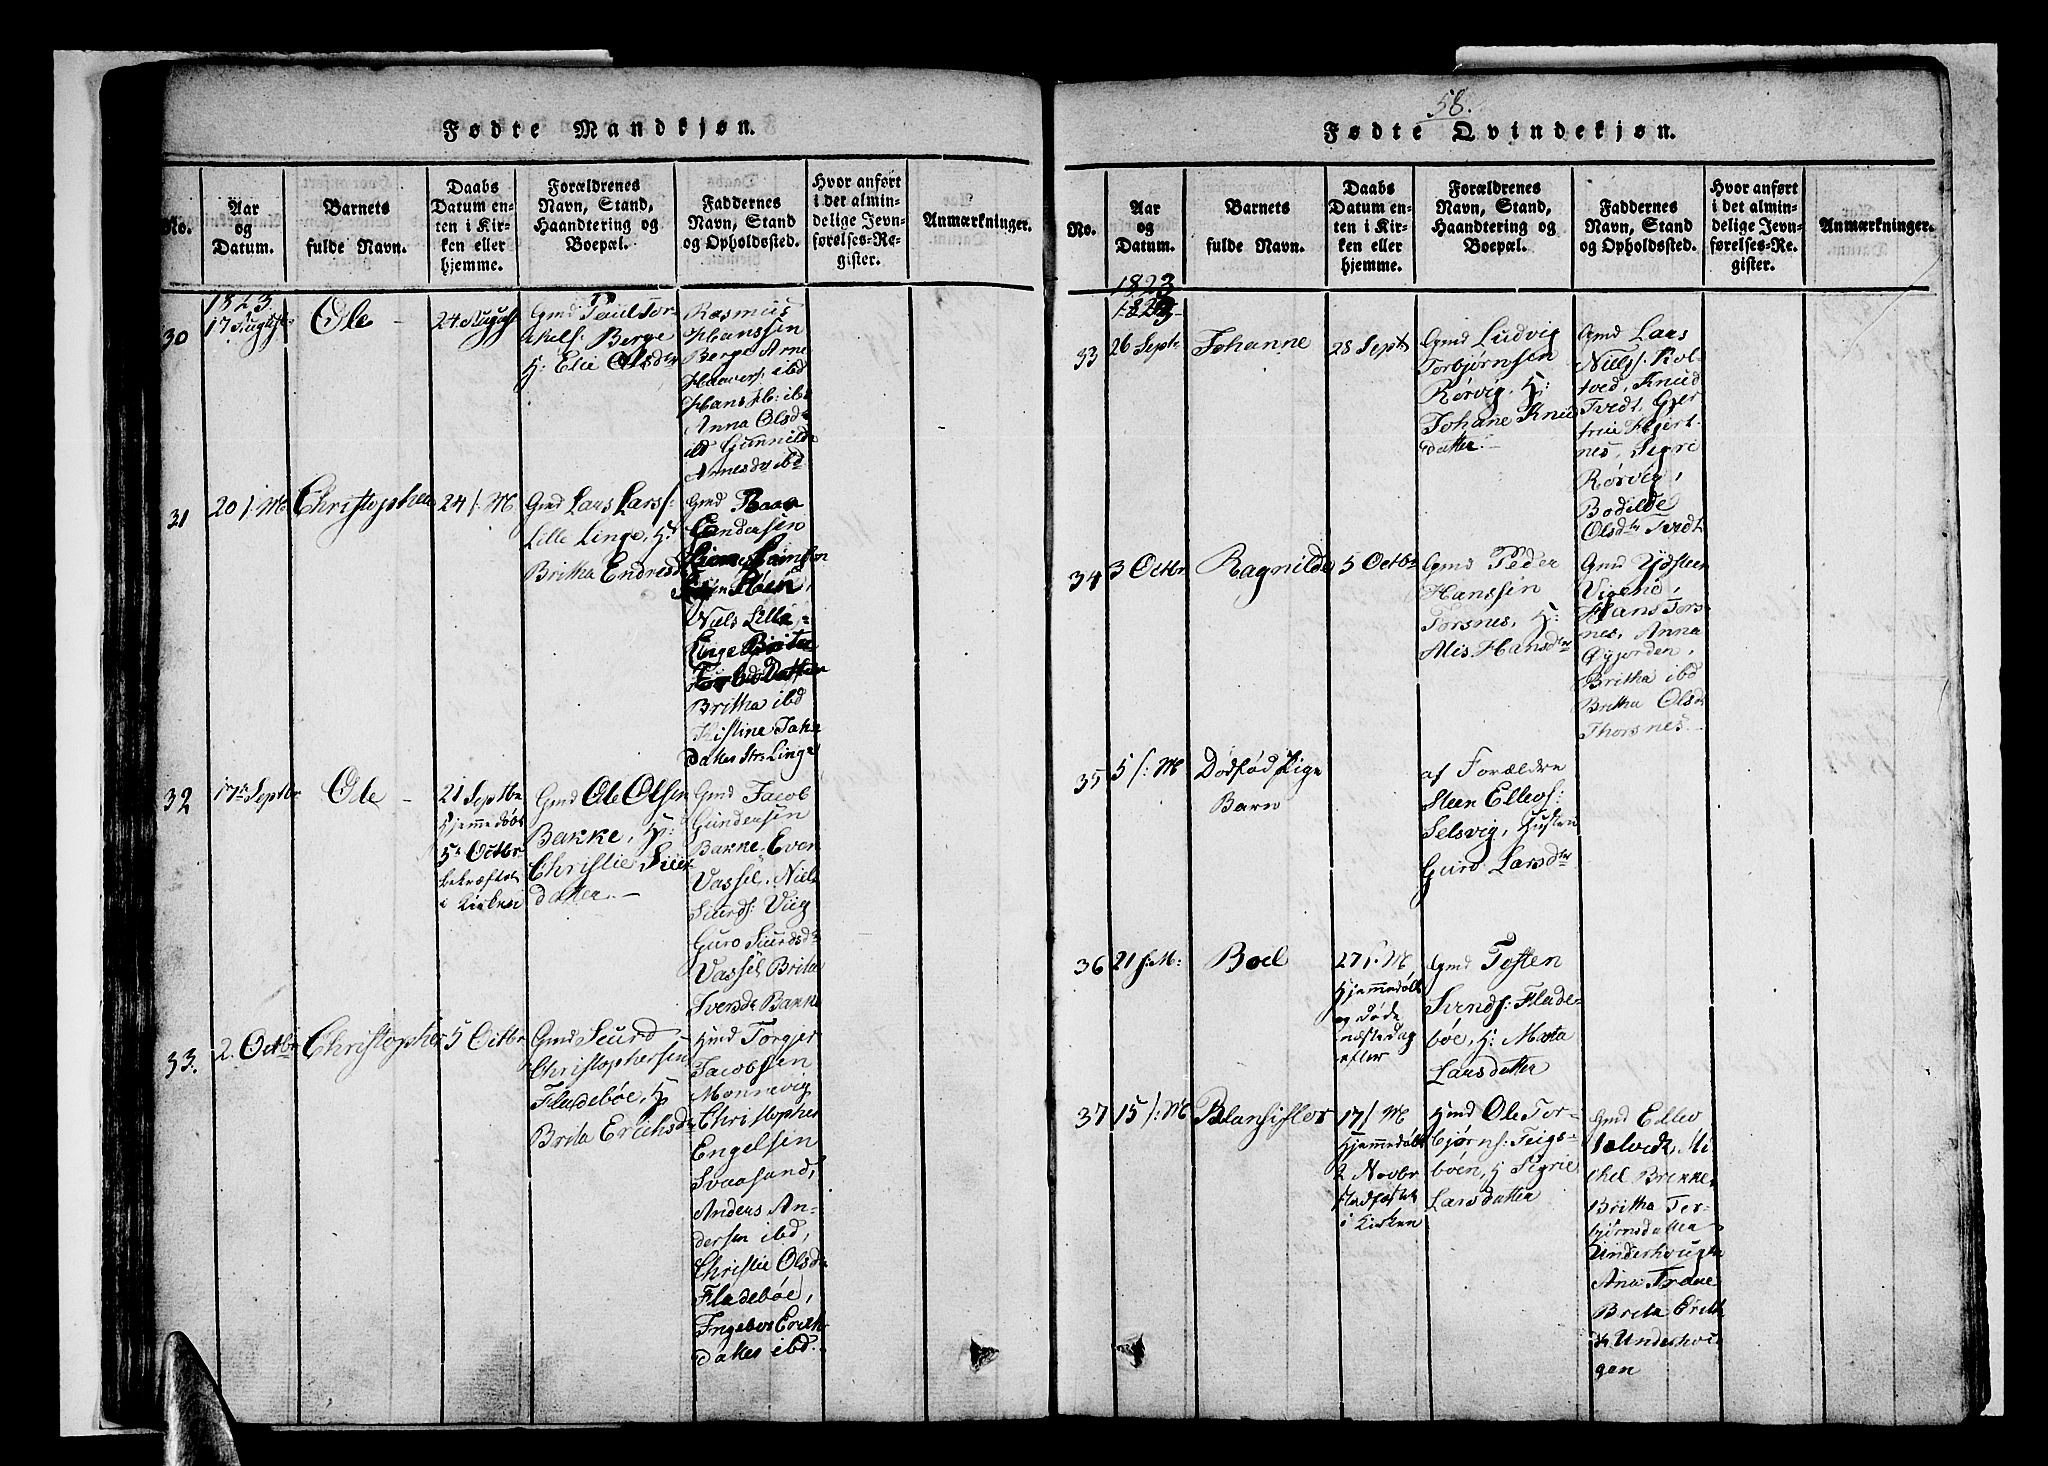 58.
Fødte Mandkjøn.
No.
Aar
og
Datum.
Barnets
fulde Navn.
Daabs
Datum en-
ten i Kir-
ken eller
hjemme.
Forældrenes
Navn, Stand,
Haandtering og
Boepæl.
Faddernes
Navn, Stand
og Opholdssted.
Hvor anført
i det almin-
delige Jevn-
førelses-Re-
gister.
Anmærkninger.
1823
30
17 August
Ole
24 August
Gmd Paul Tor-
kels: Berge
H: Elie Olsdtr
Rasmus
Hanssen
Berge Arne
Haavers: ibd
Hans H: ibd
Anna Olsdr
ibd Gunnilde
Arnesdr ibd
31
20 /: M
Christopher
24 /: M
Gmd Lars Lars:
Lille Linge, H:
Britha Endresd
Gmd
Endersen
Niels Lille
Linge
Britha ibd
Kistine Jako
Datter Str Linge
32
17de Septbr
Ole
21 Septbr
hjemmedøbt
5te Octbr
bekræftet
i Kirken
Gmd Ole Olsen
Bakke, H:
Christie Siur
datter
Gmd Jacob
Gundersen
Bakke, Ever
Vassel, Niels
Siurds: Viig
Guro Siurdsdr
Vassel Brita
Iversdr Bakke
33.
2. Octbr
Christopher
5 Octbr
Gmd Siurd
Christophersen
Fladebøe, H
Brita Erichsdr
Hmd Torger
Jacobsen
Monnevig
Christopher
Engelsen
Svaasand,
Anders An-
dersen ibd,
Christie Olsdr
Fladebøe,
Ingebor Erichs
datter ibd
Fødte Qvindekjøn.
No.
Aar
og
Datum.
Barnets
fulde Navn.
Daabs
Datum en-
ten i Kir-
ken eller
hjemme.
Forældrenes
Navn, Stand,
Haandtering og
Boepæl.
Faddernes
Navn, Stand
og Opholdssted.
Hvor anført
i det almin-
delige Jevn-
førelses-Re-
gister.
Anmærkninger.
1823
1823
33
26 Septr
Johanne
28 Septr
Gmd Ludvig
Torbjørnsen
Rørvig, H:
Johane Knud
datter
Gmd Lars
Niels: Rot-
tved, Knud
Tvedt, Gjer
true Hjert-
nes, Sigri
Rørvig,
Bodilde
Olsdtr Tvedt
34
3 Octbr
Ragnilde
5 Octbr
Gmd Peder
Hanssen
Torsnes, H:
Alis Hansdtr
Gmd Ydsteen
Vigene,
Hans Tors-
nes, Anna
Gyjorden,
Britha ibd
Britha Olsdr
Thorsnes
35
5 /: M
Dødfød Pige
Barn
af Forældre
Steen Ellevs:
Selsvig, Hustru
Gurd Larsdtr
36
21 /: M:
Boel
27 /: M
Hjemmedøbt
og døde
næste dag
efter
Gmd Tosten
Svends: Flade-
bøe, H: Marta
Larsdatter
37
15 /: M
Blansiflor
17 /: M
Hjemmedøbt
2 Novbr
stadfæstet
i Kirken
Hmd Ole Tor-
bjørns: Teigs-
bøen, H Sigrie
Larsdatter
Gmd Ellev
Tolvedt, Mi
chel Brekke
Britha Tor-
bjørnsdatter
Underhougen
Ana Trane
Brita Erich
Underhou
gen